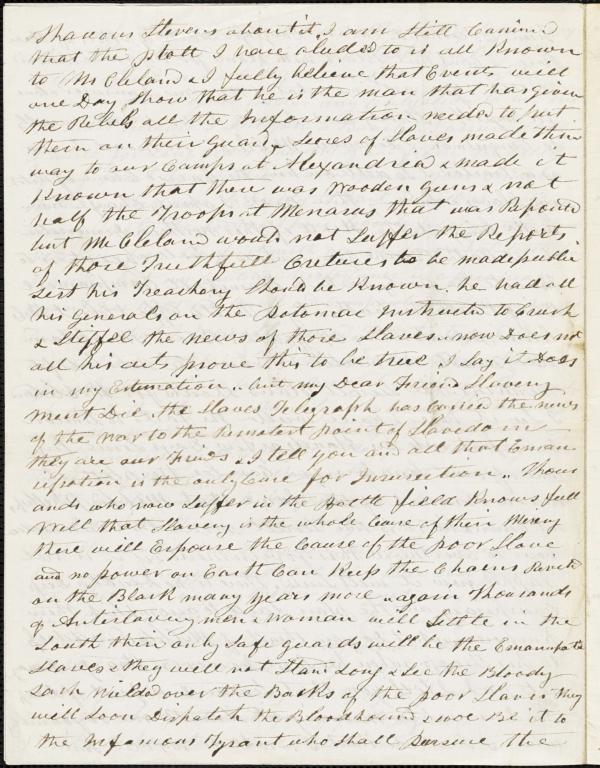 Thadous Stevens about it, I am Still Convinc
that the plott I have aluded to is all Known
to McCleland & I fully believe that Events will
one Day Show that he is the man that has given
the Rebels all the Information needed to put
them on their Guard, Scores of Slaves made thire
way to our Camps at Alexandrea & made it
Known that there was wooden guns & not
half the Troops at Menasas that was Reported
but McCleland would not Suffer the Reports
of those Truthfull Cretures to be made public
Lest his Treachery Should be Known. he had all
his generals on the Potomac Instructed to Crush
& Stiffel the news of those Slaves. now Does not
all his acts prove this to be true, I Say it Does
in my Estimation, but my Dear Friend Slavery
Must Die, the Slaves Telegraph has Carried the news
of the War to the Remotest point of Slavedom
they are our Friends, I tell you and all that Eman
cipation is the only Cure for Insurection, Thous
ands who now Suffer in the Battle field Knows full
Well that Slavery is the whole Cause of their Misery
there will Espouse the Cause of the poor Slave
and no power on Earth Can Keep the Chains Riveted
on the Black many years more, again Thousands
of Antislavery men & Woman will Settle in the
South their only Safe guards will be the Emancipated
Slaves & they will not Stand Long & See the Bloody
Lash Wielded over the Backs of the poor Slaves they
will Soon Dispatch the Bloodhound & woe Be it to
the Infamous Tyrant who Shall Pursue the